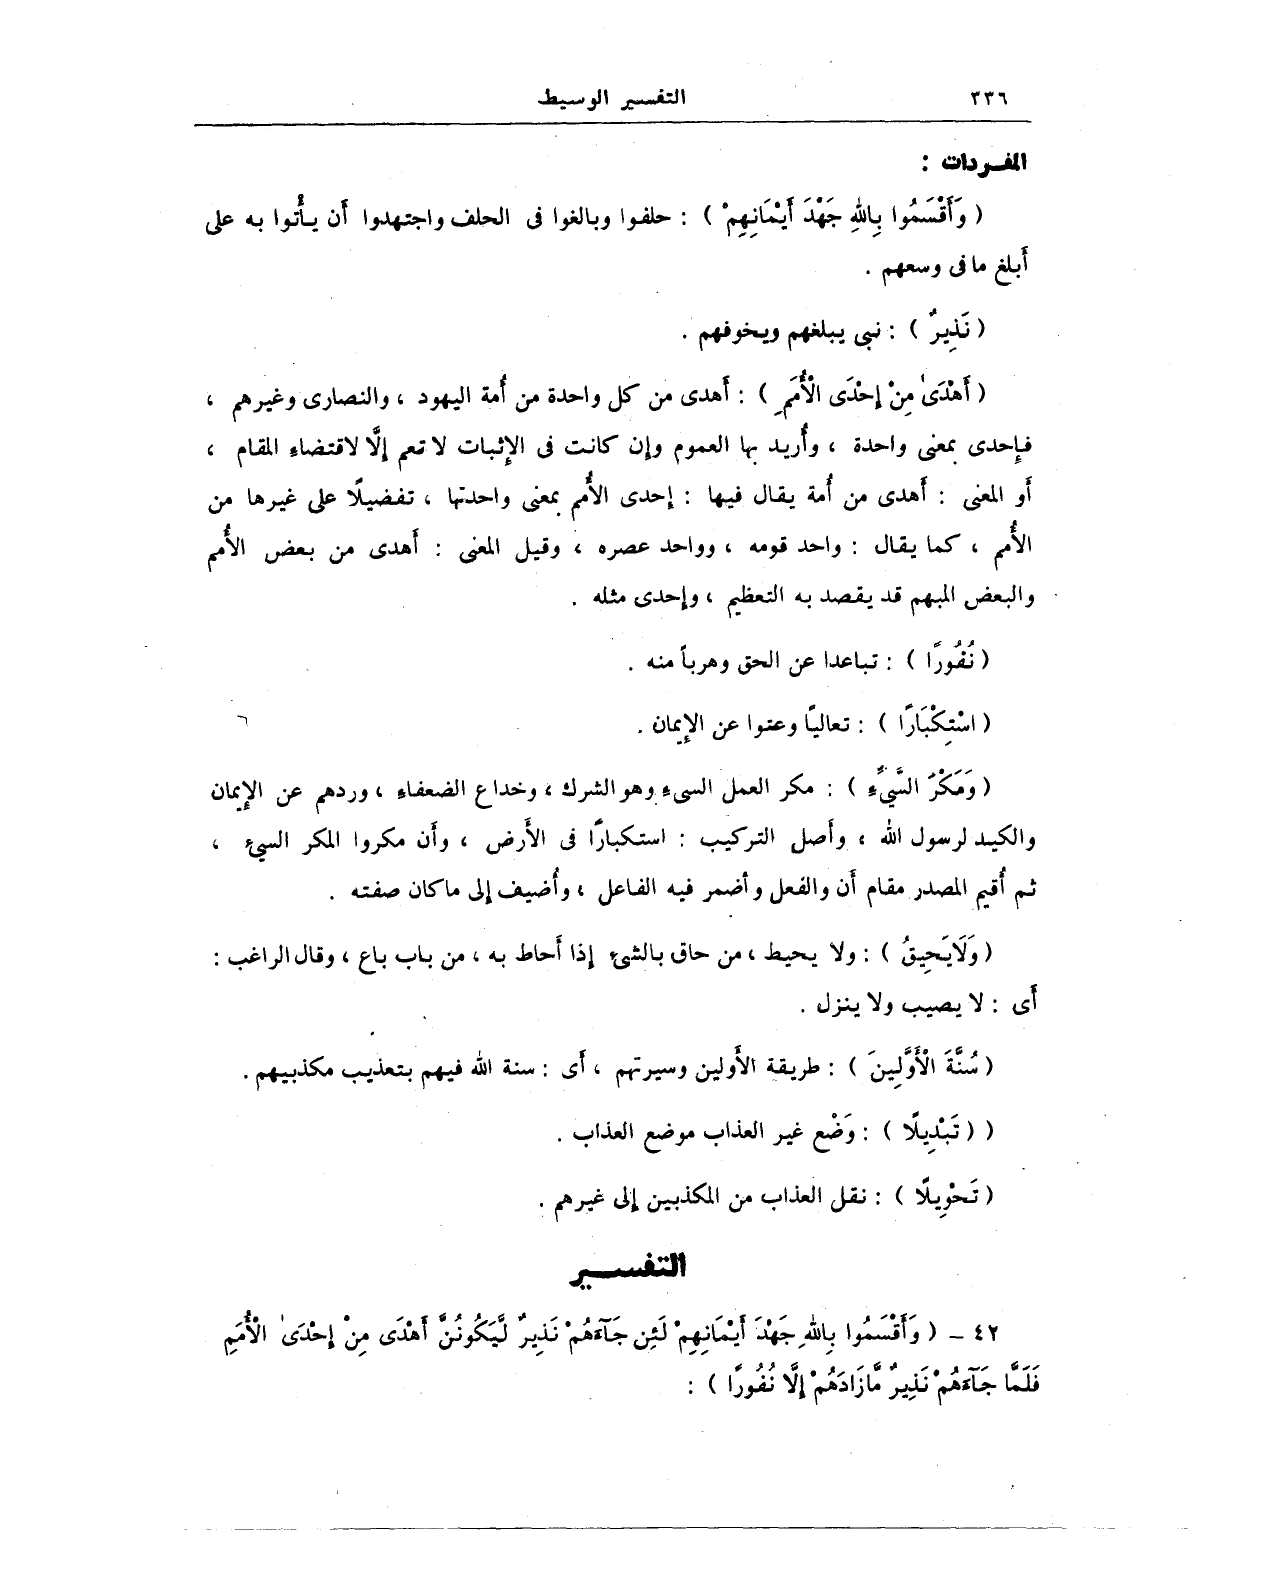 ٣٣٦ التفسير الوسيط
المفـردات :
( وَأَقْسَمُوا بِاللهِ جَهْدَ أَيْمَانِهِمْ ) : حلفوا وبالغوا فى الحلف واجتهدوا أن يأتوا به على
أبلغ ما فى وسعهم .
( نَذِيرٌ ) : نبى يبلغهم ويخوفهم .
( أَهْدَىٰ مِنْ إِحْدَى الْأُمَمِ ) : أهدى من كل واحدة من أُمة اليهود ، والنصارى وغيرهم ،
فإحدى بمعنى واحدة ، وأُريد بها العموم وإن كانت فى الإثبات لا تعم إلَّا لاقتضاء المقام ،
أو المعنى : أهدى من أمة يقال فيها : إحدى الأُمم بمعنى واحدتها ، تفضيلًا على غيرها من
الأُمم ، كما يقال : واحد قومه ، وواحد عصره ، وقيل المعنى : أهدى من بعض الأُمم
والبعض المبهم قد يقصد به التعظيم ، وإحدى مثله .
( نُفُورًا ) : تباعدا عن الحق وهرباً منه .
( اسْتِكْبَارًا ) : تعاليًا وعتوا عن الإيمان .
( وَمَكْرَ السَّيِّءِ ) : مكر العمل السىء وهو الشرك ، وخداع الضعفاء ، وردهم عن الإيمان
والكيد لرسول الله ، وأصل التركيب : استكبارًا فى الأرض ، وأن مكروا المكر السيئ ،
ثم أُقيم المصدر مقام أن والفعل وأضمر فيه الفاعل ، وأُضيف إلى ما كان صفته .
( وَلَا يَحِيقُ ) : ولا يحيط ، من حاق بالشئ إذا أحاط به ، من باب باع ، وقال الراغب :
أى : لا يصيب ولا ينزل .
( سُنَّةَ الْأَوَّلِينَ ) : طريقة الأولين وسيرتهم ، أى : سنة الله فيهم بتعذيب مكذبيهم .
( ( تَبْدِيلًا ) : وَضْع غير العذاب موضع العذاب .
( تَحْوِيلًا ) : نقل العذاب من المكذبين إلى غيرهم .
التفســـير
٤٢ - ( وَأَقْسَمُوا بِاللهِ جَهْدَ أَيْمَانِهِمْ لَئِن جَآءَهُمْ نَذِيرٌ لَّيَكُونُنَّ أَهْدَى مِنْ إِحْدَىٰ الْأُمَمِ
فَلَمَّا جَآءَهُمْ نَذِيرٌ مَّازَادَهُمْ إِلَّا نُفُورًا ) :